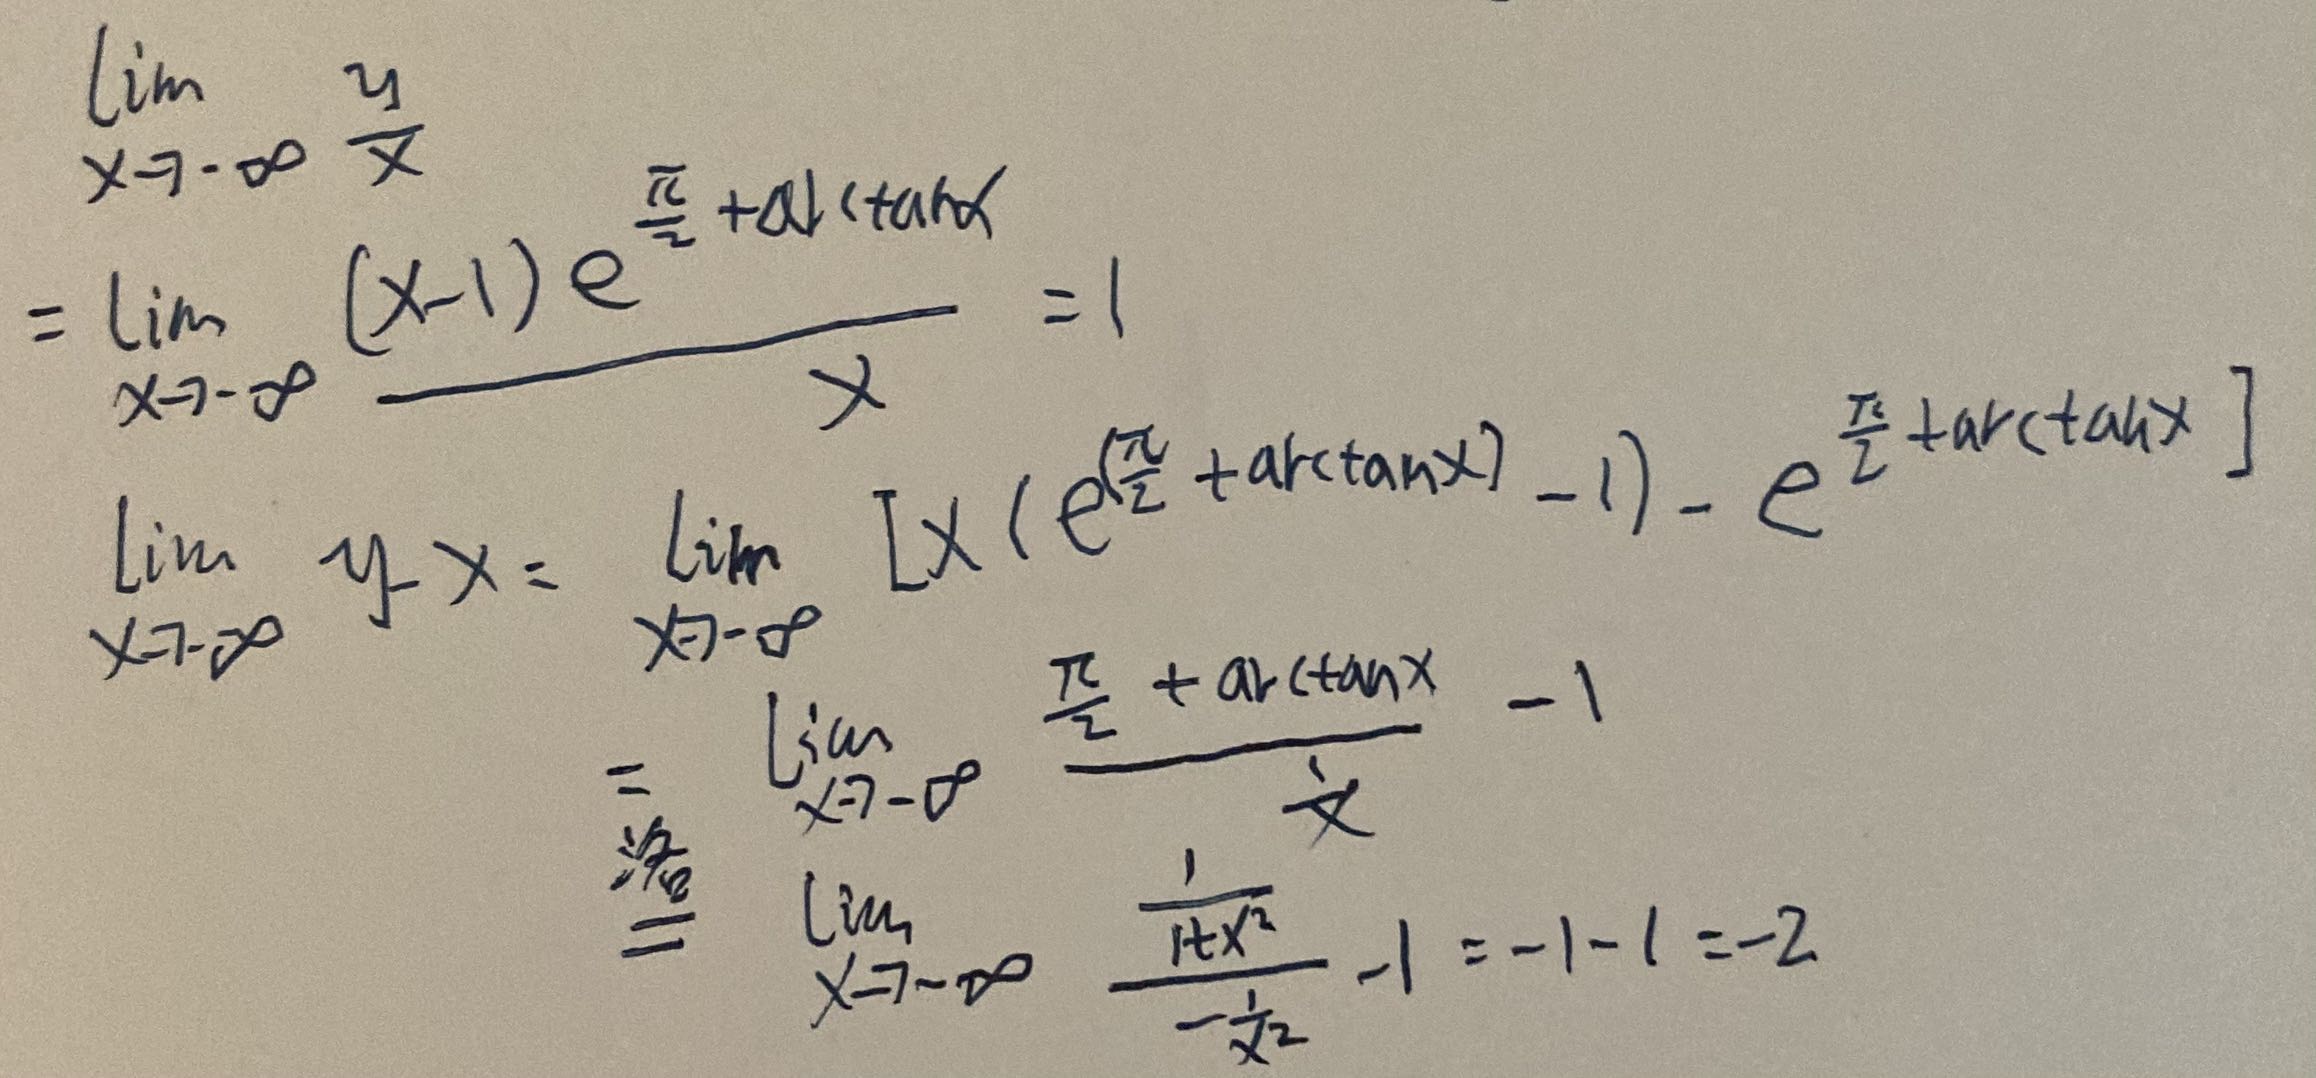 lim_{x→-∞} y/x
= lim_{x→-∞} (x-1)e^{π/2 + arctanx} / x = 1
lim_{x→-∞} y-x = lim_{x→-∞} [x(e^{(π/2 + arctanx)} - 1) - e^{π/2 + arctanx}]
= lim_{x→-∞} (π/2 + arctanx) / (1/x) - 1
洛= lim_{x→-∞} (1/(1+x²)) / (-1/x²) - 1 = -1-1 = -2